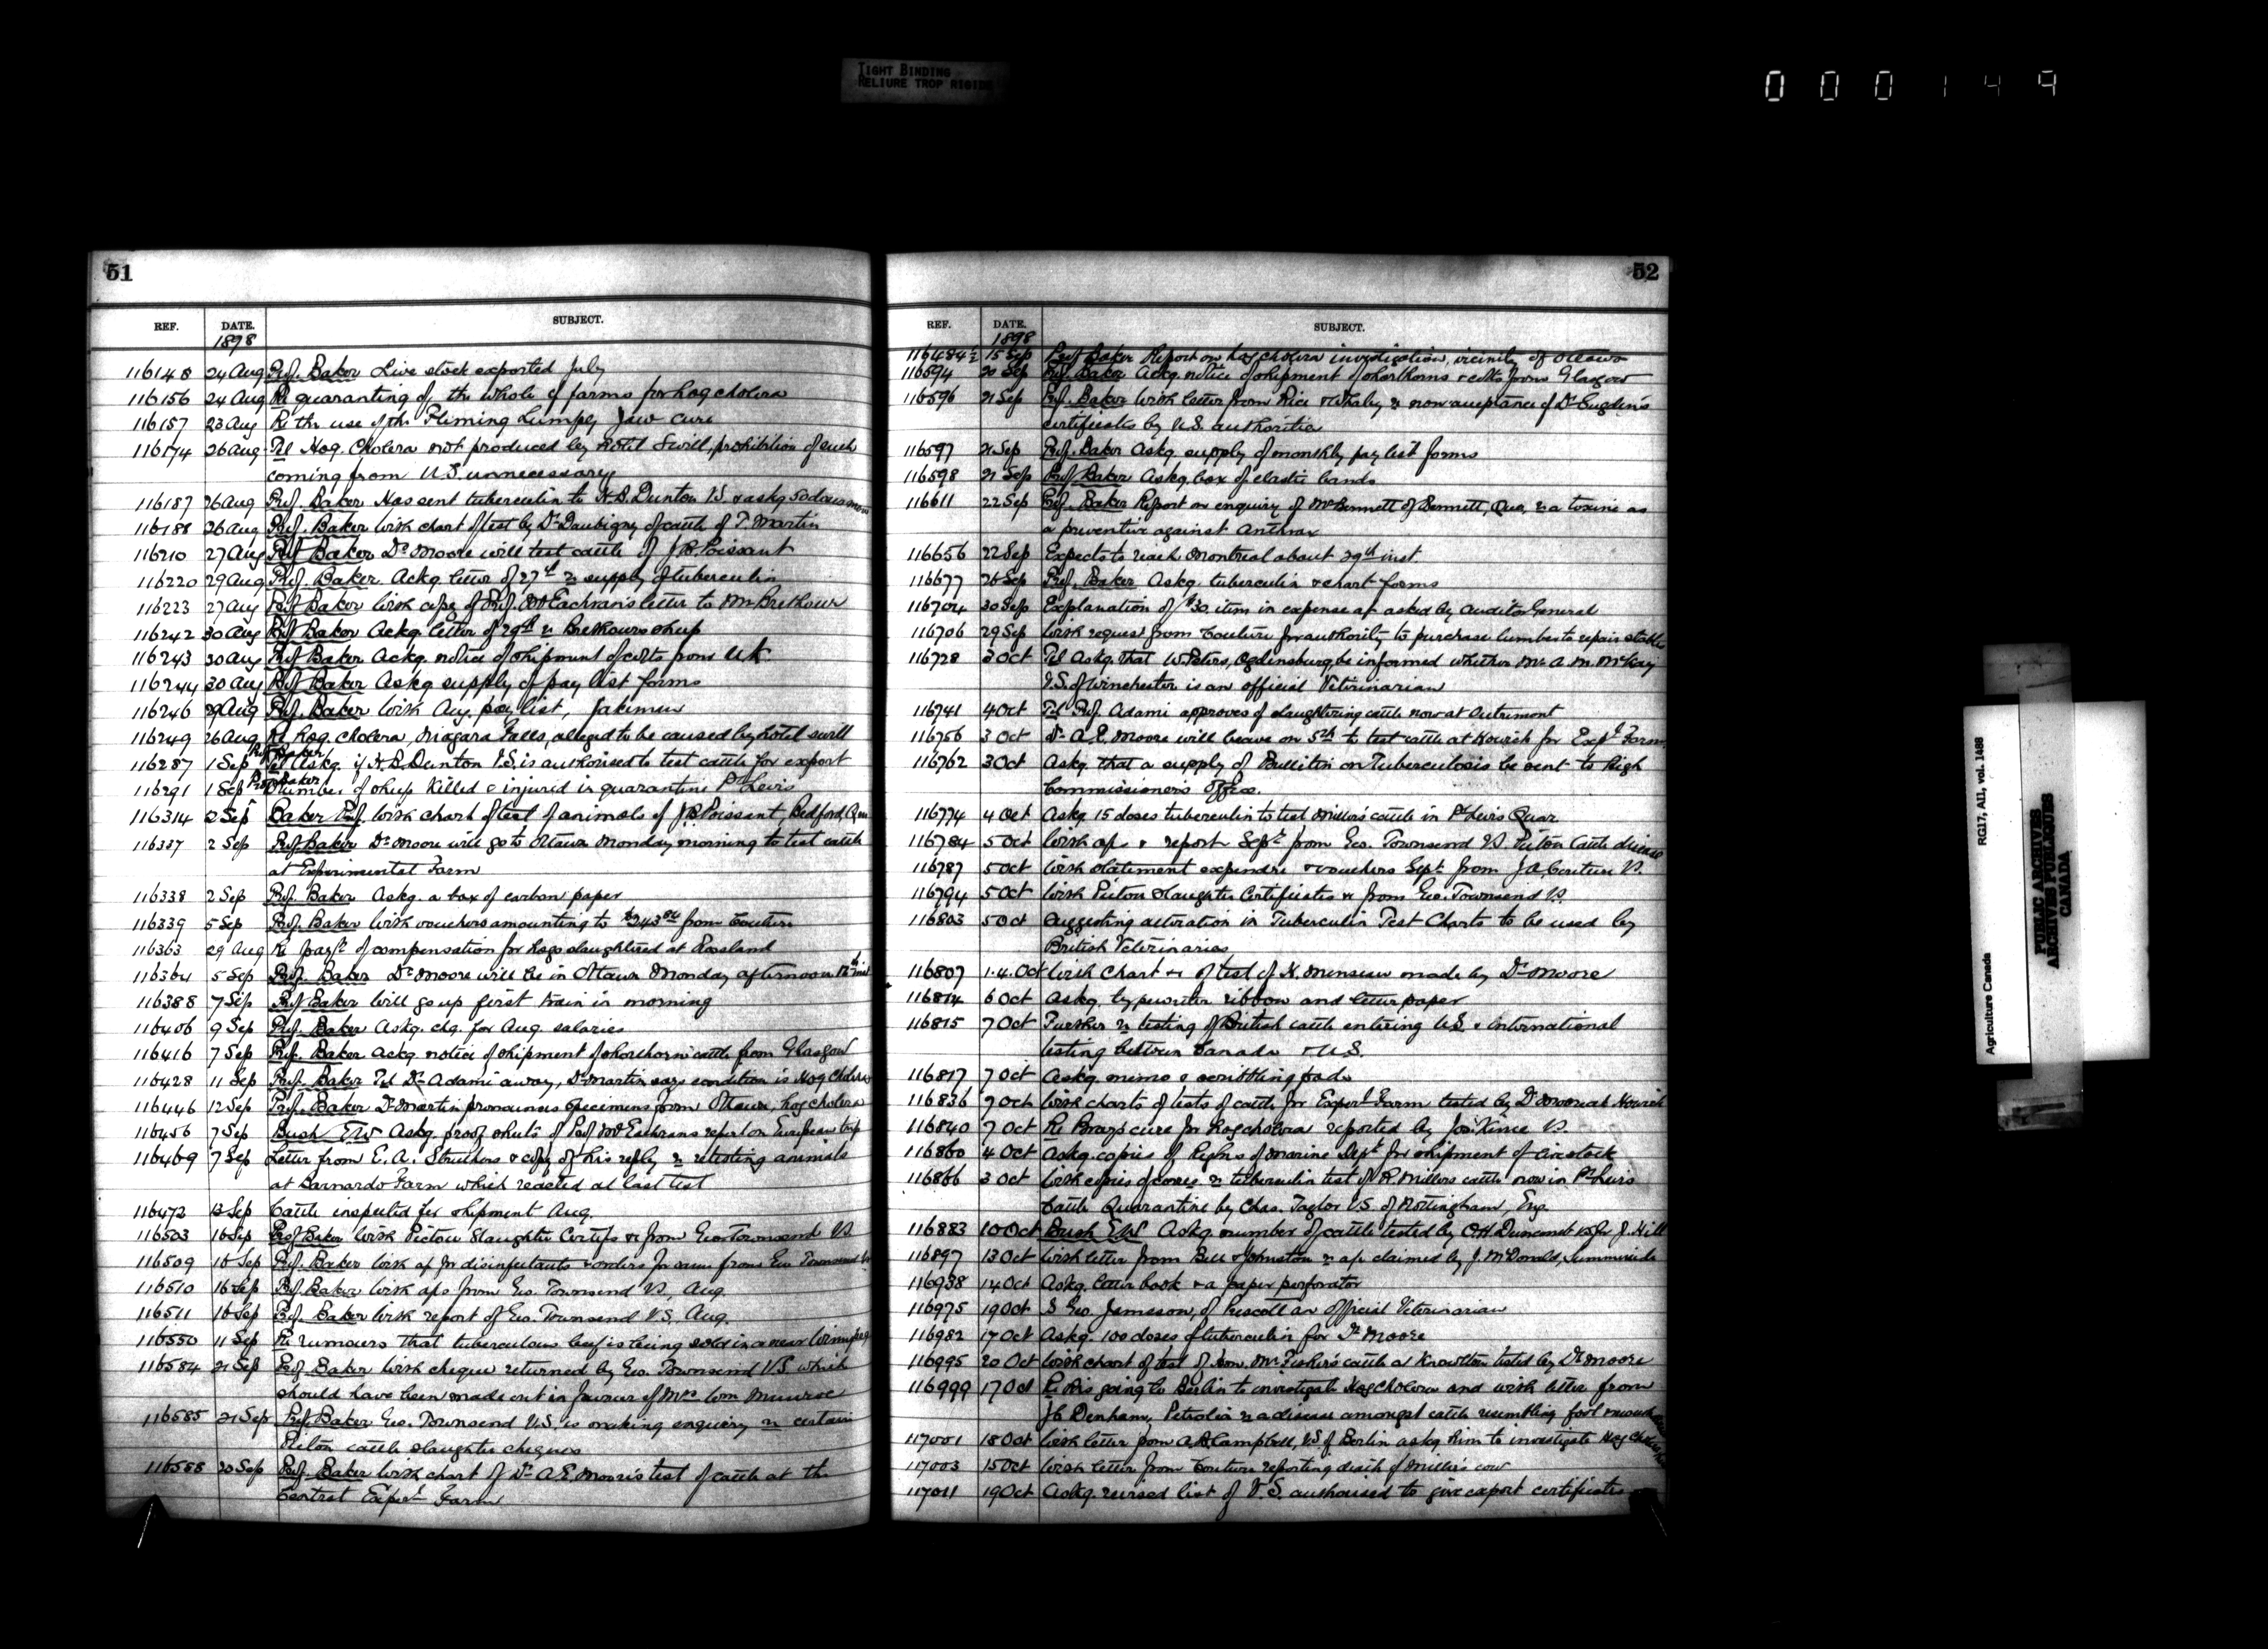 TIGHT BINDING
RELIURE TROP RIGIDE
000149
51
REF. DATE. SUBJECT.
1898
116148 24 Aug Prof. Baker Live stock exported July
116156 24 Aug Re quaranting of the whole of farms for hog cholera
116157 23 Aug Re the use of the Fleming Lumpy Jaw cure
116174 26 Aug Tel Hog Cholera not produced by hotel swill, prohibition of such
coming from U.S. unnecessary
116187 26 Aug Prof. Baker Has sent tuberculin to H.D. Dunton V.S. & askg 50 doses more
116188 26 Aug Prof. Baker With chart of test by Dr Daubigny of cattle of T. Martin
116210 27 Aug Prof Baker Dr Moore will test cattle of J.B. Poissant
116220 29 Aug Prof. Baker. Ackg letter of 27th re supply of tuberculin
116223 27 Aug Prof Baker With copy of Prof. McEachran's letter to Mr Brethour
116242 30 Aug Prof Baker Ackg letter of 29th re Brethours sheep
116243 30 Aug Prof Baker Ackg. notice of shipment of colts from UK
116244 30 Aug Prof Baker Askg supply of pay list forms
116246 29 Aug Prof. Baker With Aug. pay list,
116249 26 Aug Re Hog cholera, Niagara Falls, alleged to be caused by hotel swill
Prof Baker
116287 1 Sep Tel Askg. if H.D. Dunton V.S. is authorised to test cattle for export
Prof Baker
116291 1 Sep Number of sheep killed & injured in quarantine Pt Levis
116314 2 Sep Baker Prof. With chart of test of animals of J.B. Poissant, Bedford, Que
116337 2 Sep Prof Baker Dr Moore will go to Ottawa Monday morning to test cattle
at Experimental Farm
116338 2 Sep Prof. Baker Askg. a box of carbon paper
116339 5 Sep Prof. Baker With vouchers amounting to $243 from Couture
116363 29 Aug Re payt of compensation for hogs slaughtered at Rossland
116364 5 Sep Prof. Baker Dr Moore will be in Ottawa Monday afternoon 12th inst
116388 7 Sep Prof Baker Will go up first train in morning
116406 9 Sep Prof. Baker Askg. chq. for Aug. salaries
116416 7 Sep Prof. Baker Ackg notice of shipment of shorthorn cattle from Glasgow
116428 11 Sep Prof. Baker Tel Dr Adami away, Dr Martin says condition is Hog Cholera
116446 12 Sep Prof. Baker Dr Martin pronounces specimens from Ottawa, hog cholera
116456 7 Sep Bush E.W Askg. proof sheets of Prof McEachrans report on European trip
116469 7 Sep Letter from E.A. Struthers & copy of his reply re retesting animals
at Barnardo Farm which reacted at last test
116472 13 Sep Cattle inspected for shipment Aug.
116503 16 Sep Prof Baker With Pictou Slaughter Certifs &c from Geo Townsend V.S.
116509 16 Sep Prof. Baker With a/c for disinfectants & orders for same from Geo Townsend V.S.
116510 16 Sep Prof. Baker With a/cs from Geo. Townsend V.S., Aug.
116511 16 Sep Prof. Baker With report of Geo. Townsend V.S. Aug.
116550 11 Sep Re rumours that tuberculous beef is being sold in or near Winnipeg
116584 21 Sep Prof. Baker With cheque returned by Geo. Townsend V.S. which
should have been made out in favour of Mrs Wm Munroe
116585 21 Sep Prof. Baker Geo. Townsend V.S. is making enquiry re certain
Picton cattle slaughter cheques
116588 20 Sep Prof. Baker With chart of Dr A.E. Moore's test of cattle at the
Central Exper'l Farm
52
REF. DATE. SUBJECT.
1898
116484½ 15 Sep Prof Baker Report on hog cholera investigation, vicinity of Ottawa
116594 20 Sep Prof. Baker Ackg. notice of shipment of shorthorns & colts from Glasgow
116596 21 Sep Prof. Baker With letter from Rice & Whaley re non-acceptance of Dr Sugden's
certificates by U.S. authorities
116597 21 Sep Prof. Baker Askg. supply of monthly pay list forms
116598 21 Sep Prof Baker Askg. box of elastic bands
116611 22 Sep Prof. Baker Report on enquiry of Mr Bennett of Bennett, Que, re a toxine as
a preventive against Anthrax
116656 22 Sep Expects to reach Montreal about 29th inst.
116677 26 Sep Prof. Baker Askg. tuberculin & chart forms
116704 30 Sep Explanation of $30. item in expense a/c asked by Auditor General
116706 29 Sep With request from Couture for authority to purchase lumber to repair stable
116728 3 Oct Tel Askg. that W. Peters, Ogdensburg, be informed whether Mr A.M. McKay
V.S. of Winchester is an official Veterinarian
116741 4 Oct Tel Prof. Adami approves of slaughtering cattle now at Outremont
116756 3 Oct Dr A.E. Moore will leave on 5th to test cattle at Howick for Expl Farm
116762 3 Oct Askg. that a supply of Bulletin on Tuberculosis be sent to High
Commissioner's Office.
116774 4 Oct Askg. 15 doses tuberculin to test Miller's cattle in Pt Levis Quar
116784 5 Oct With a/cs & report Sept from Geo. Townsend V.S. Picton Cattle disease
116787 5 Oct With statement expendre & vouchers Sept. from J.A. Couture V.S.
116794 5 Oct With Picton Slaughter Certificates &c from Geo. Townsend V.S.
116803 5 Oct Suggesting alteration in Tuberculin Test Charts to be used by
British Veterinaries
116807 1.4. Oct With Chart &c of test of made by Dr Moore
116814 6 Oct Askg. typewriter ribbon and letter paper
116815 7 Oct Further re testing of British cattle entering U.S. & International
testing between Canada & U.S.
116817 7 Oct Askg. memo & scribbling pads
116836 9 Oct With charts of tests of cattle for Experl Farm tested by Dr Moore at Howick
116840 7 Oct Re cure for hog cholera reported by Jos. V.S.
116860 4 Oct Askg. copies of Regns of Marine Dept for shipment of live stock
116866 3 Oct With copies of corres re tuberculin test of R. Millers cattle now in Pt Levis
Cattle Quarantine by Chas. Taylor V.S. of Nottingham, Eng.
116883 10 Oct Bush E.W Askg. number of cattle tested by for J. Hill
116897 13 Oct With letter from Bell & Johnston re a/c claimed by J. McDonald, Summerside
116938 14 Oct Askg. letter book & a paper perforator
116975 19 Oct Is Geo. Jameson, of Prescott an official Veterinarian
116982 17 Oct Askg. 100 doses of tuberculin for Dr Moore
116995 20 Oct With chart of test of Hon. Mr Fisher's cattle at Knowlton tested by Dr Moore
116999 17 Oct Re his going to Berlin to investigate Hog cholera and with letter from
Denham, Petrolia re a disease amongst cattle resembling foot & mouth
117001 18 Oct With letter from A.R. Campbell, V.S. of Berlin askg him to investigate Hog Cholera
117003 15 Oct With letter from Couture reporting death of Miller's cow
117011 19 Oct Askg. revised list of V.S. authorised to give export certificates
Agriculture Canada RG17, AII, vol. 1488
PUBLIC ARCHIVES
ARCHIVES PUBLIQUES
CANADA